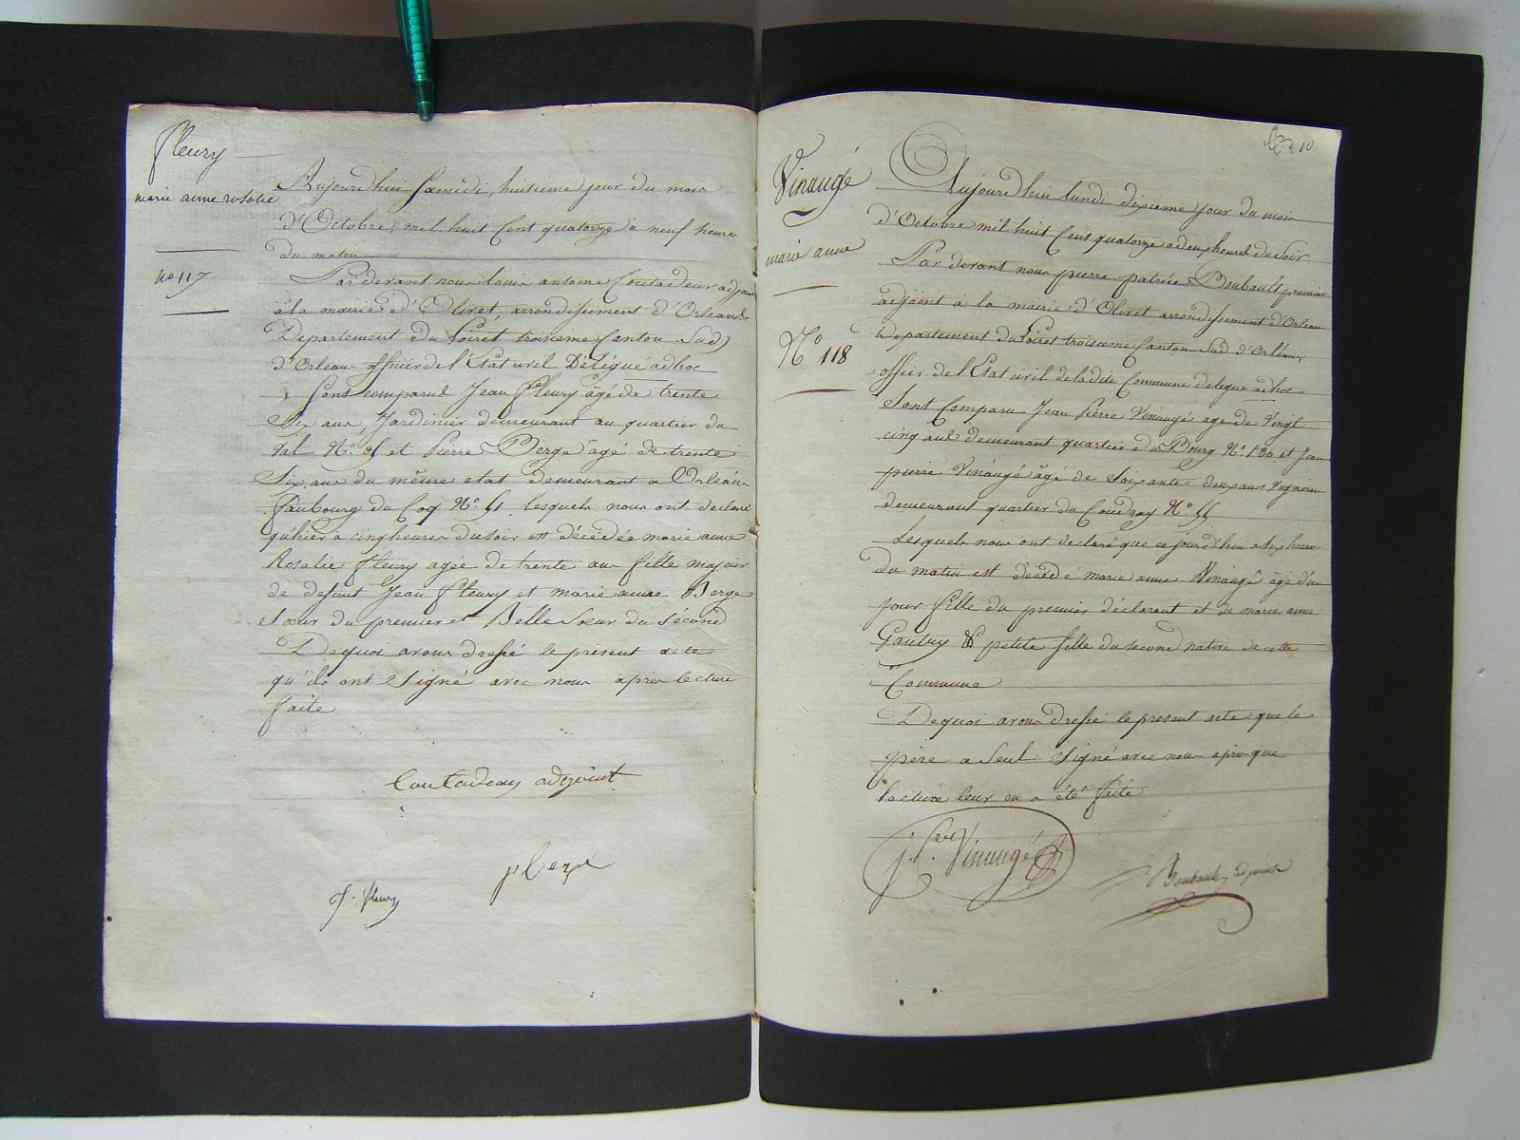 fleury
marie anne rosalie
no 117
Aujourdhui samedi huitieme jour du mois
d'Octobre mil huit Cent quatorze a neuf heures
Du matin
Par devant nous Louis antoine Coutadeur adjoint
à la mairie d'Olivet, arrondissement d'Orleans
Departement du Loiret troisieme Canton Sud
d'Orleans officier de l'Etat civil Délégué adhoc
Sont comparus Jean Fleury âgé de trente
Six ans, Jardinier demeurant au quartier du
Val No et Pierre Berge âgé de trente
Six ans du même etat demeurant a Orléans
Faubourg du Coq No 51 lesquels nous ont declaré
qu'hier a cinq heures du soir est décédée marie anne
Rosalie fleury agée de trente ans fille majeure
de defunt Jean fleury et marie anne Berge
Soeur du premier et Belle Soeur du Second
De quoi avons dressé le présent acte
qu'ils ont Signé avec nous apres lecture
faite
Coutadeur adjoint
J. fleury
10
Vinaugé
marie anne
No 118
Aujourdhui lundi dixieme jour du mois
d'Octobre mil huit Cent quatorze a deux heures de Soir
Par devant nous pierre patrice Boubault premier
adjoint a la mairie d'Olivet arrondissement d'Orleans
Departement du Loiret troisieme Canton Sud d'Orléans
officier de l'Etat civil de ladite Commune delegué adhoc
Sont Comparu Jean Pierre Vinaugé age de Vingt
cinq ans demeurant quartier du Bourg No et Jean
pierre Vinaugé âgé de Soixante deux ans Vigneron
demeurant quartier du Coudray No
Lesquels nous ont declaré que ce jourdhui a Six heures
du matin est décédé marie anne Vinaugé âgé d'un
jour fille du premier déclarant et de marie anne
Gaudry & petite fille du second native de cette
Commune
De quoi avons dressé le present acte que le
père a Seul Signé avec nous après que
lecture leur en a été faite
j. P. Vinaugé
Boubault adjoint